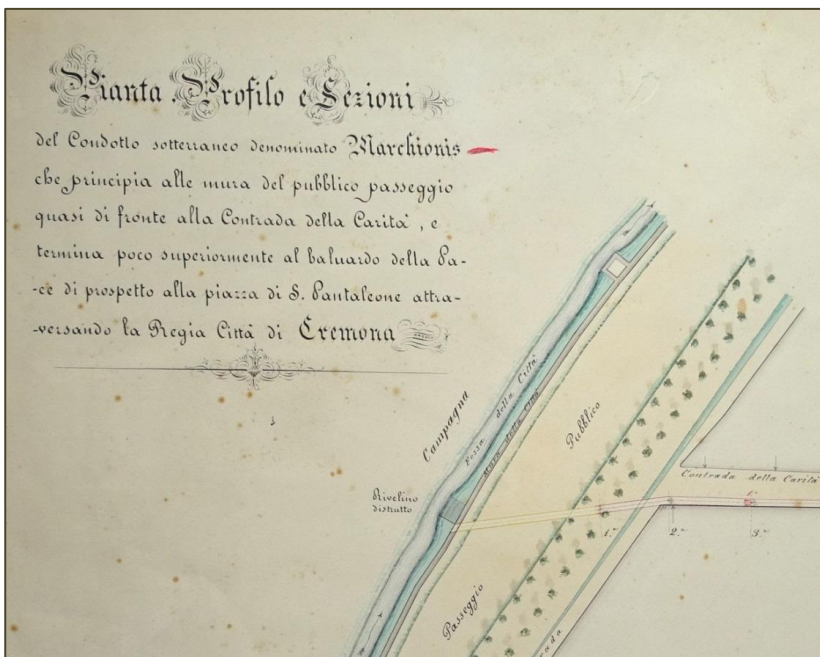 Pianta, Profilo e Sezioni
del Condotto sotterraneo denominato Marchionis
che principia alle mura del pubblico passeggio
quasi di fronte alla Contrada della Carità, e
termina poco superiormente al baluardo della Pa-
-ce di prospetto alla piazza di S. Pantaleone attra-
-versando la Regia Città di Cremona
Campagna
Fossa della Città
Mura della Città
Pubblico
Contrada della Carità
Rivelino
distrutto
1.°
2.°
3.°
Passeggio
rada